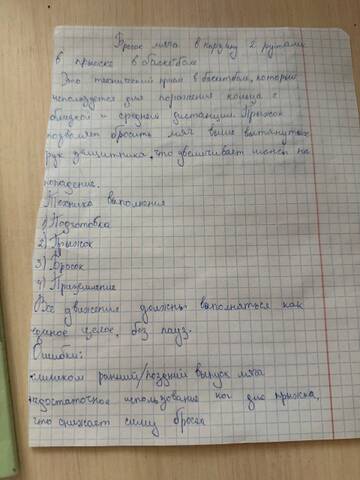 Бросок мяча в корзину 2 руками
в прыжке в баскетбол
Это технический прием в баскетбол, который
используется для поражения кольца с
близкой и средней дистанции. Прыжок
позволяет бросить мяч выше вытянутых
рук защитника, что увеличивает шансы на
попадение.
Техника выполнения
1) Подготовка
2) Прыжок
3) Бросок
4) Приземление
Все движения должны выполняться как
целое, без пауз.
Ошибки:
слишком ранний/поздний выпуск мяча
недостаточное использование ног для прыжка,
что снижает силу броска